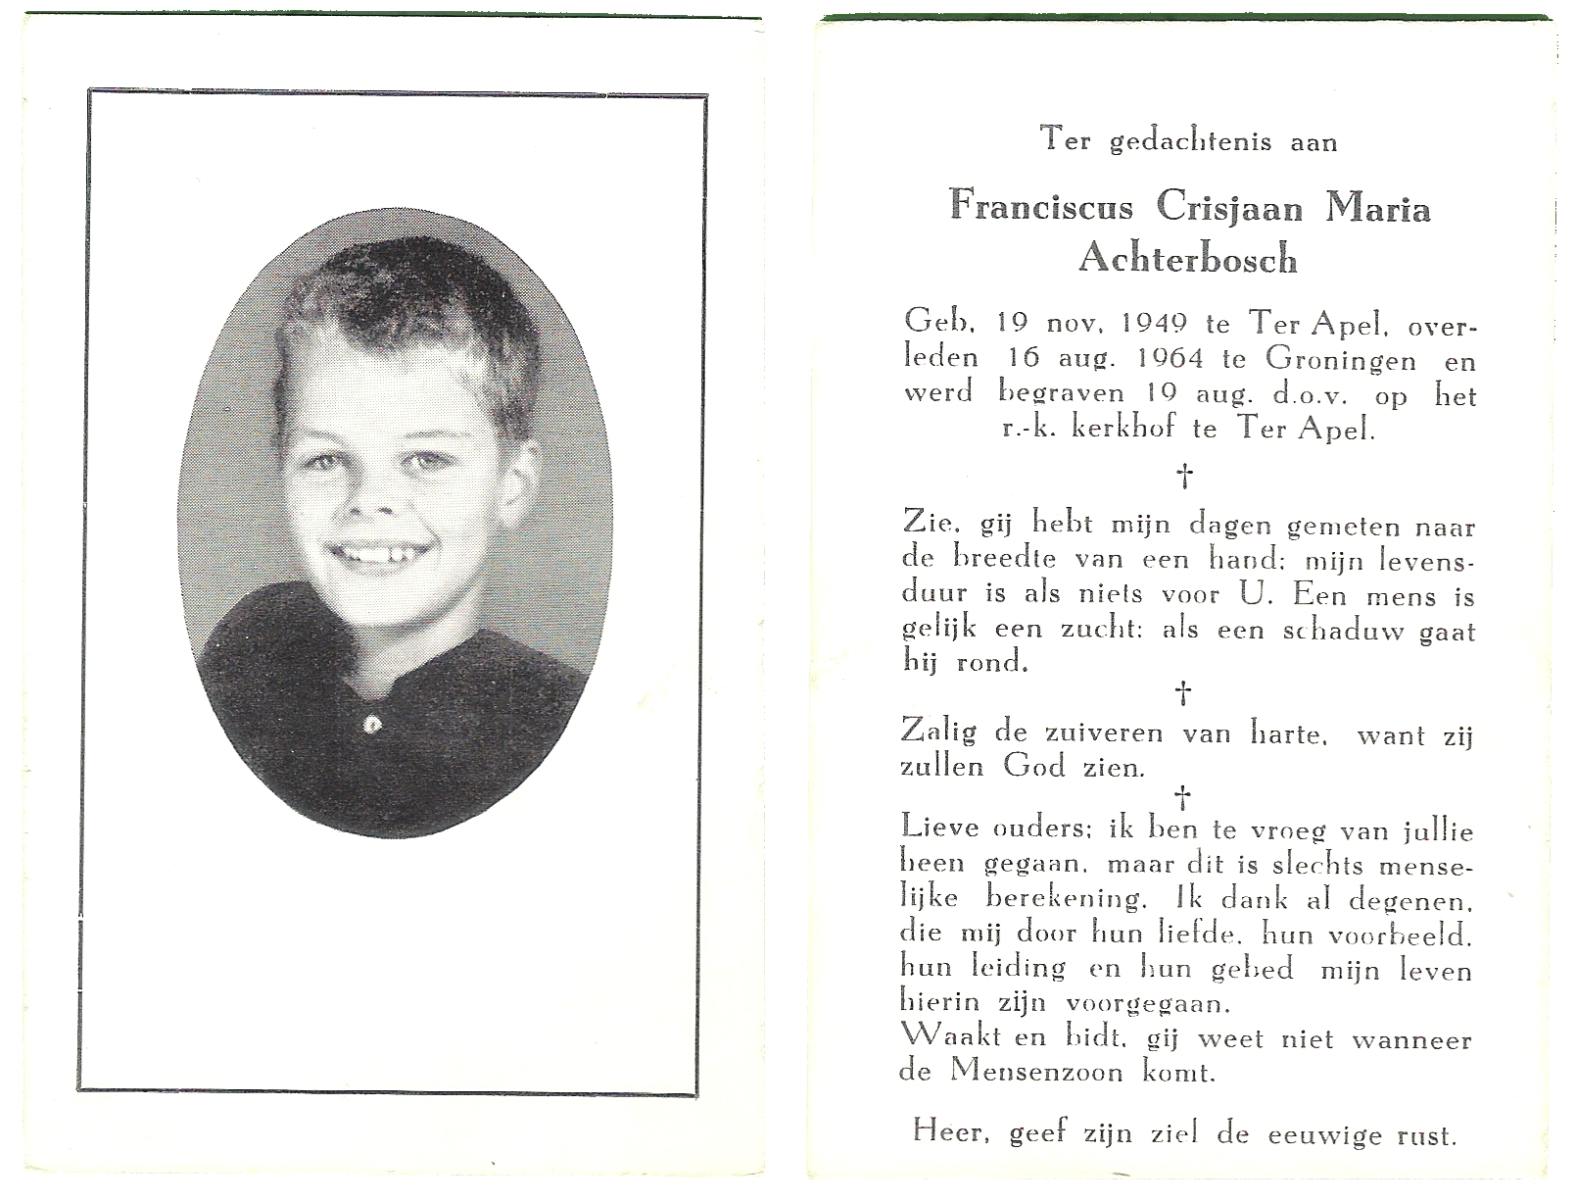 Ter gedachtenis aan
Franciscus Crisjaan Maria
Achterbosch
Geb. 19 nov. 1949 te Ter Apel, over-
leden 16 aug. 1964 te Groningen en
werd begraven 19 aug. d.o.v. op het
r.-k. kerkhof te Ter Apel.
†
Zie, gij hebt mijn dagen gemeten naar
de breedte van een hand; mijn levens-
duur is als niets voor U. Een mens is
gelijk een zucht: als een schaduw gaat
hij rond.
†
Zalig de zuiveren van harte, want zij
zullen God zien.
†
Lieve ouders; ik ben te vroeg van jullie
heen gegaan, maar dit is slechts mense-
lijke berekening. Ik dank al degenen,
die mij door hun liefde, hun voorbeeld,
hun leiding en hun gebed mijn leven
hierin zijn voorgegaan.
Waakt en bidt, gij weet niet wanneer
de Mensenzoon komt.
Heer, geef zijn ziel de eeuwige rust.